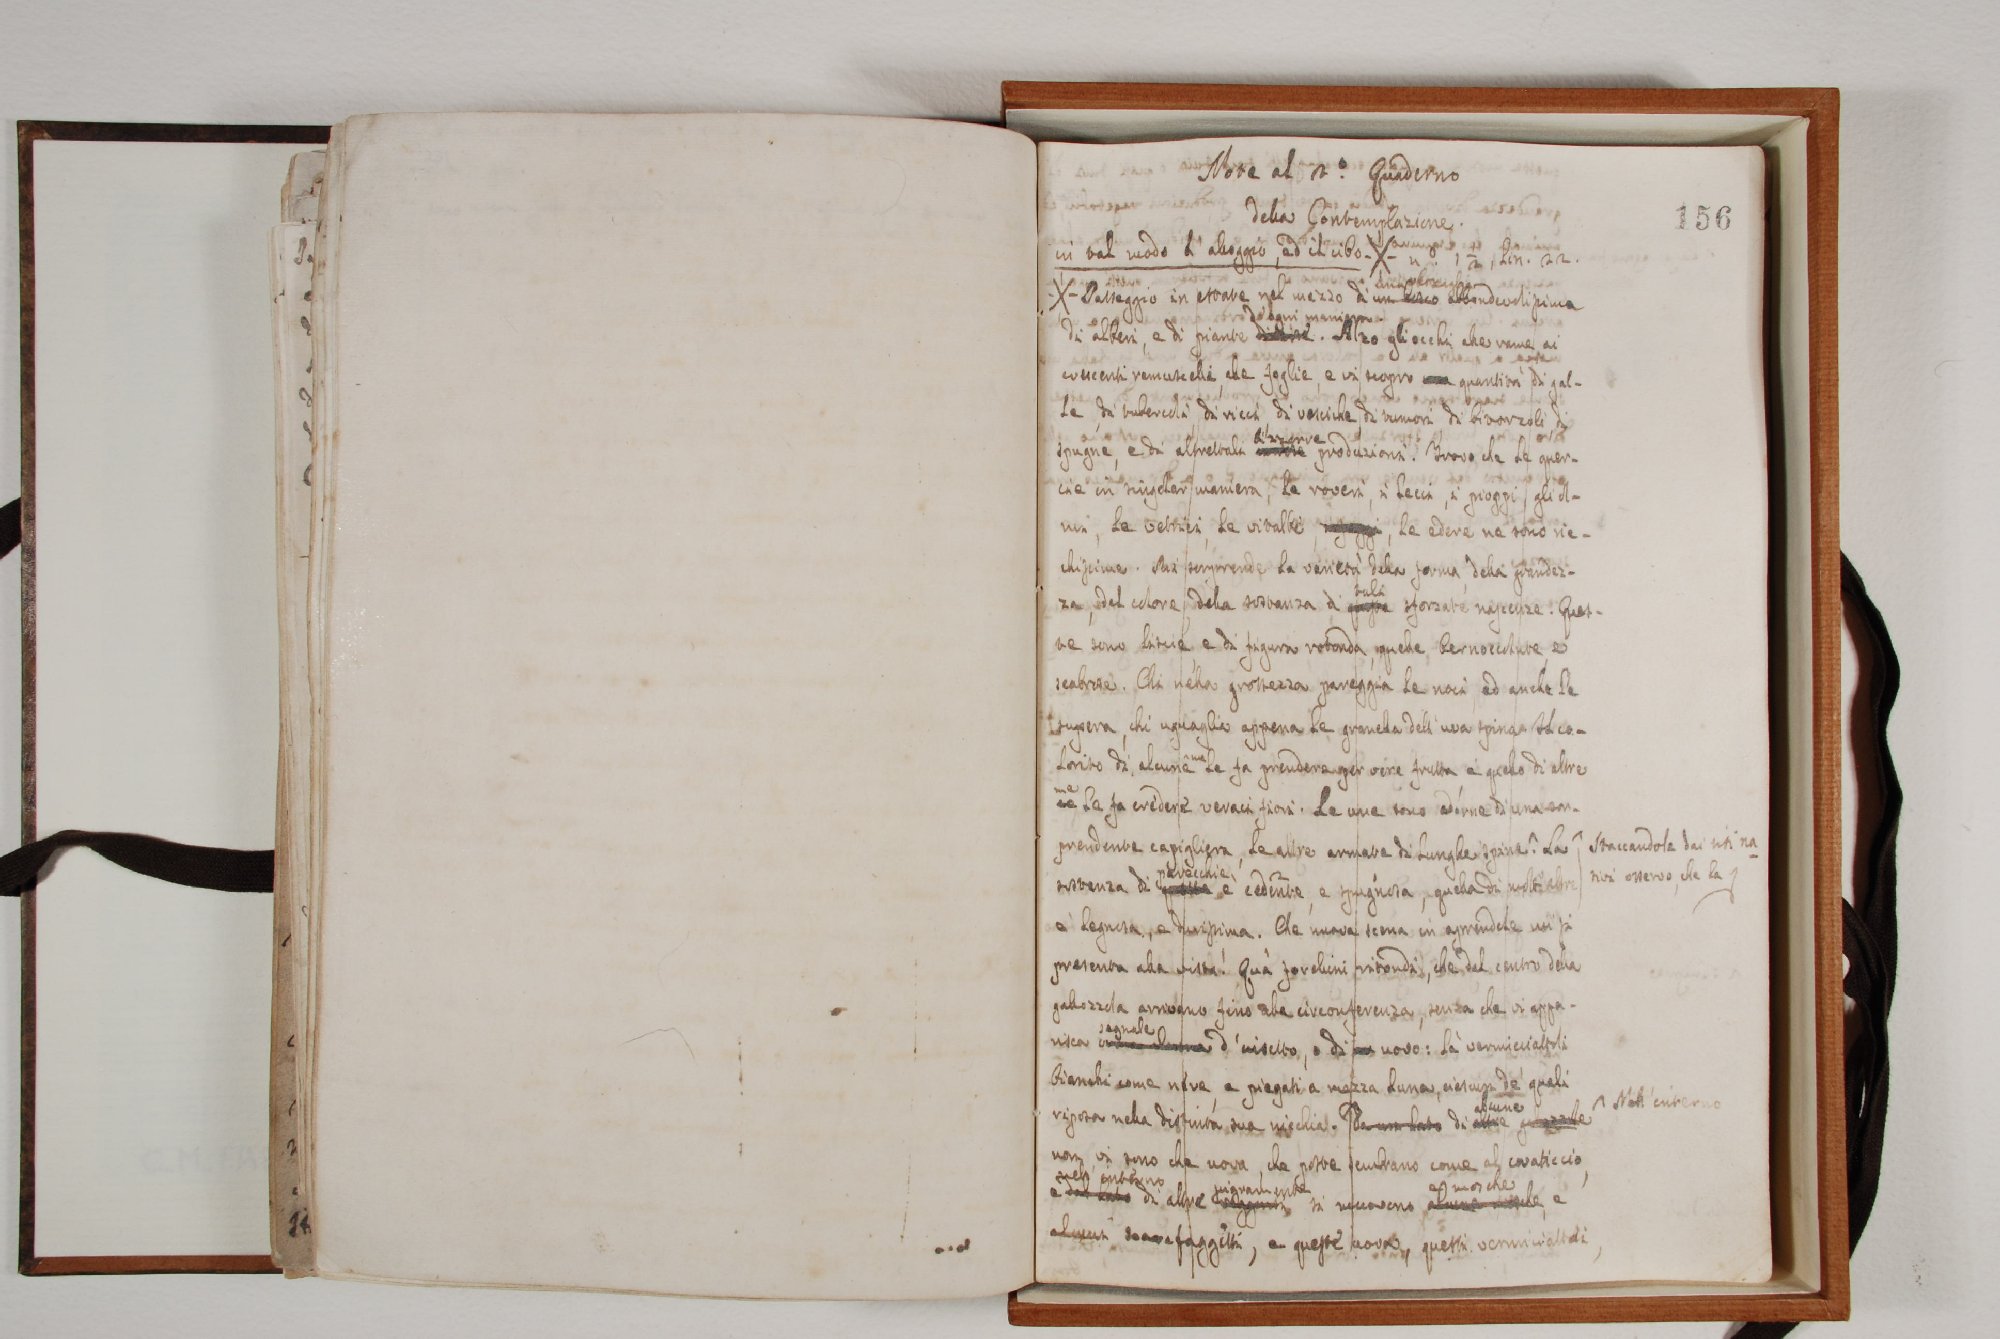 Note al 2.° Quaderno
della Contemplazione.
156
in tal modo l'alloggio, ed il cibo -X- n.° 1 1/2, Lin. 22.
-X- Passeggio in estate nel mezzo di abbondevolissima
di alberi, e di piante d'ogni maniera. Alzo gli occhi che rame ai
crescenti ramuscelli, che foglie, e vi scopro quantità di gal-
le, di tubercoli, di ricci, di vesciche, di tumori, di bitorzoli, di
spugne, e di altrettali bizzarre produzioni. Trovo che le quer-
cie in singolar maniera, le roveri, i lecci, i pioppi, gli ol-
mi, le vetrici, le vitalbe, le edere ne sono ric-
chissime. Mi sorprende la varietà della forma, della grandez-
za, del colore, della sostanza di tali sforzate nascenze. Ques-
te sono liscie e di figura rotonda, quelle bernoccolute, e
scabrose. Chi nella grossezza pareggia le noci, ed anche le
supera, chi uguaglia appena le granella dell'uva spina. Il co-
lorito di alcune me le fa prendere per vere frutta e quello di altre
me le fa credere veraci fiori. Le une sono adorne di una sor-
prendente capigliera, le altre armate di lunghe spine. La
Staccandole dai siti na-
tivi osservo, che la
sostanza di parecchie è cedente, e spugnosa, quella di molte altre
è legnosa, e durissima. Che nuova scena in aprendole mi si
presenta alla vista! Quà forellini ritondi, che dal centro della
gallozzola arrivano fino alla circonferenza, senza che vi appa-
risca segnale d'insetto, o di uovo: là vermicciattoli
bianchi come neve, e piegati a mezza luna, ciascun de' quali
riposa nella distinta sua nicchia. Da un lato di alcune
Nell'interno
non vi sono che uova, che poste sembrano come al covaticcio,
e nell'interno di altre pigramente si muovono e mosche, e
alcuni scarafaggetti, e queste uova, questi vermicciattoli,